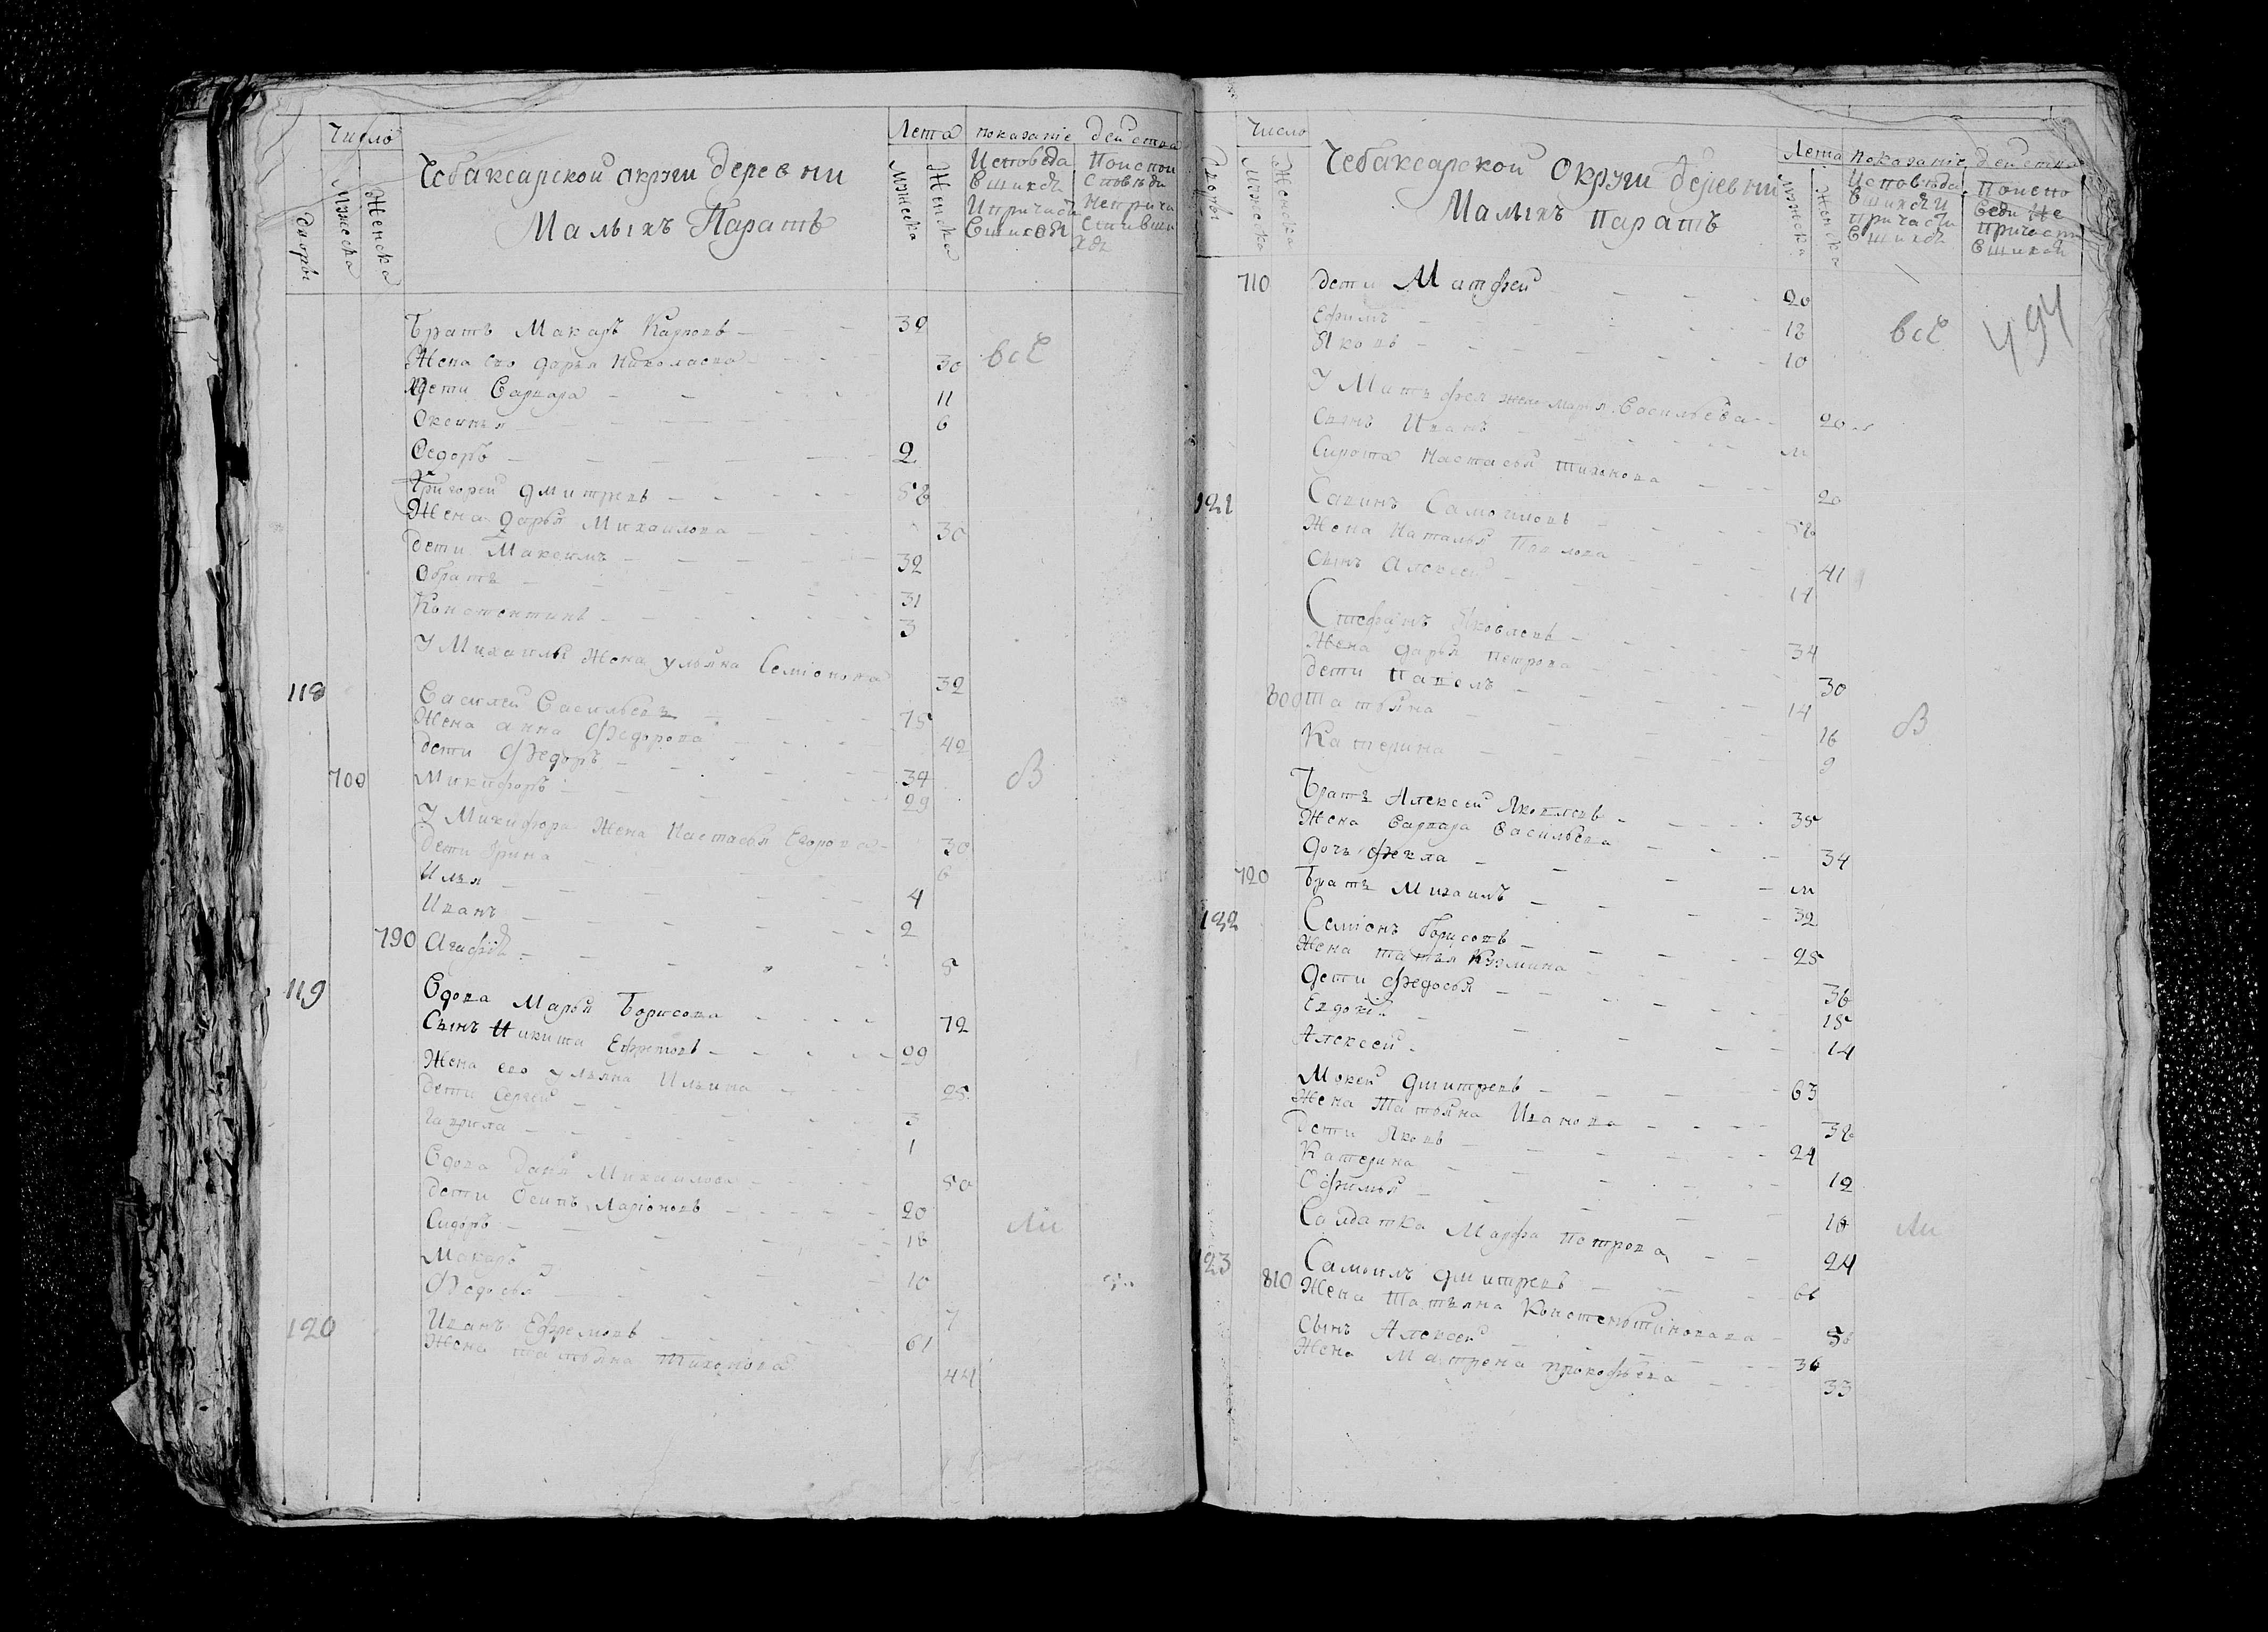 Число
Лета показанiе действа
дворы
Мужеска
Женска
Чебаксарской округи деревни
Малыхъ Паратъ
Мужеска
Женска
Исповеда
вшихся
и причасти
вшихся
По испо
споведи
неприча
стившы
хся
Братъ Макаръ Карповъ 32
всѣ
Жена ево Дарья Николаева 30
Дети Варвара 11
Оксинья 6
Ѳедоръ 2
Григорей Дмитревъ
Жена Дарья Михаилова 30
Дети Максимъ 32
31
Констентинъ 3
У Михаилы Жена Ульяна Семiонова 32
118 Василей Васильевъ 75
Жена Анна Ѳедорова 42
Дети Ѳедоръ 34
700 Микифоръ 29
У Микифора Жена Настасья Егорова 30
Дети Ирина 6
Илья 4
Иванъ 2
790 Агафiя 5
119 Вдова Марья Борисова 72
Сынъ Никита Ефремовъ 29
Жена ево Ульяна Ильина 25
Дети Сергей 3
Гаврила 1
Вдова Дарья Михаилова 50
Дети Осипъ Ларiоновъ 20
Сидоръ 16
Макаръ 10
Ѳедосья 7
120 Иванъ Ефремовъ 61
Жена Татьяна Тихонова 44
Число
Лета показанiе действа
Дворы
Мужеска
Женска
Чебаксарской округи деревни
Малыхъ Паратъ
Мужеска
Женска
Исповѣда
вшихся и
причасти
вшихся
По испо
веди не
причасти
вшихся
494
710 Дети Матфей 20
Ефимъ 12
всѣ
Яковъ 10
У Матьфея жена Марья Васильева 20
Сынъ Иванъ
Сирота Настасья Тихонова 20
121 Савинъ Самоиловъ
Жена Наталья Павлова 41
Сынъ Алексей 14
Стефанъ Яковлевъ 34
Жена Дарья Петрова 30
Дети Павелъ 14
800 Татьяна 16
Катерина 9
Братъ Алексей Яковлевъ 35
Жена Варвара Васильева 34
Дочь Ѳекла
720 Братъ Михаилъ 32
122 Семiонъ Борисовъ 25
Жена Кузмина 36
Дети Ѳедосья 15
Евдокия 14
Алексей
Мокей Дмитревъ 63
Жена Татьяна Иванова
Дети Яковъ 24
Катерина 12
Офимья 18
Салдатка Марфа Петрова 24
123 Самоилъ Дмитревъ 66
810 Жена Татьяна Констентинова
Сынъ Алексей
Жена Матрена Прокофьева 33